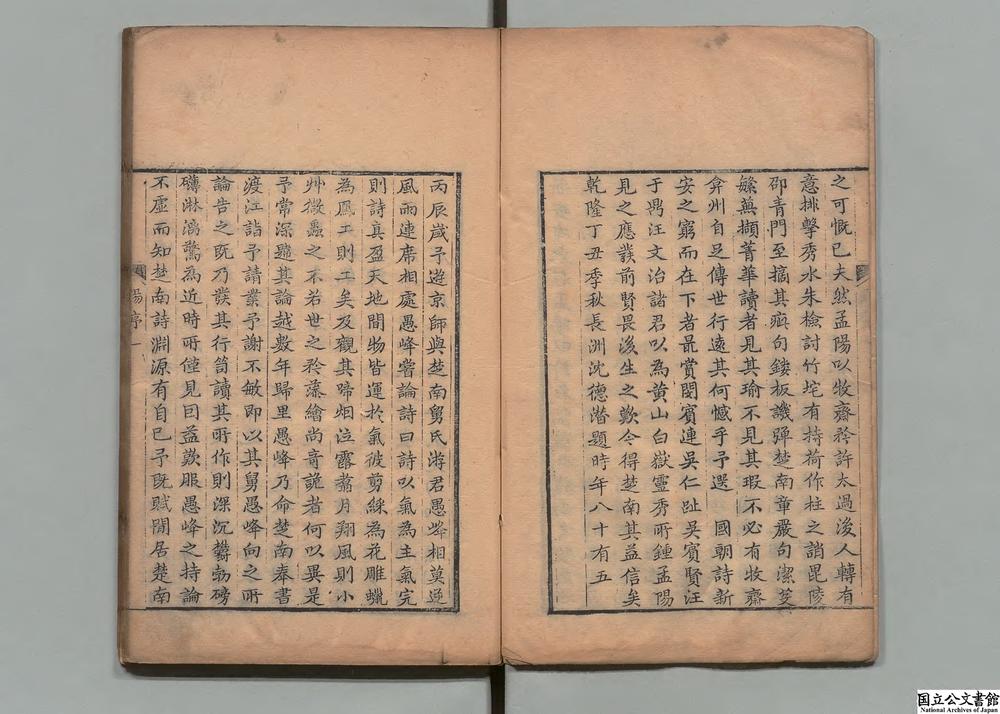 之可慨已夫然孟陽以牧齋矜許太過後人轉有
意排擊秀水朱檢討竹垞有持荷作柱之誚毘陵
邵青門至摘其疵句鏤板譏彈楚南章嚴句潔芟
繁蕪擷菁華讀者見其瑜不見其瑕不必有牧齋
弇州自足傳世行遠其何憾乎予選 國朝詩新
安之窮而在下者最賞閔賓連吳仁趾吳賓賢汪
于鼎汪文治諸君以為黃山白嶽靈秀所鍾孟陽
見之應發前賢畏後生之歎今得楚南其益信矣
乾隆丁丑季秋長洲沈德潛題時年八十有五
丙辰歲予遊京師與楚南舅氏游君愚峰相莫逆
風雨連席相處愚峰嘗論詩曰詩以氣為主氣完
則詩真盈天地間物皆運於氣彼剪綵為花雕蠟
為鳳工則工矣及觀其啼烟泣露翥月翔風則小
艸微蟲之不若世之矜藻繪尚奇詭者何以異是
予常深韙其論越數年歸里愚峰乃命楚南奉書
渡江詣予請業予謝不敏即以其舅愚峰向之所
論告之既乃發其行笥讀其所作則深沉鬱勃磅
礴淋漓驚為近時所僅見因益歎服愚峰之持論
不虛而知楚南詩淵源有自已予既賦閒居楚南
楊序 一
国立公文書館
National Archives of Japan